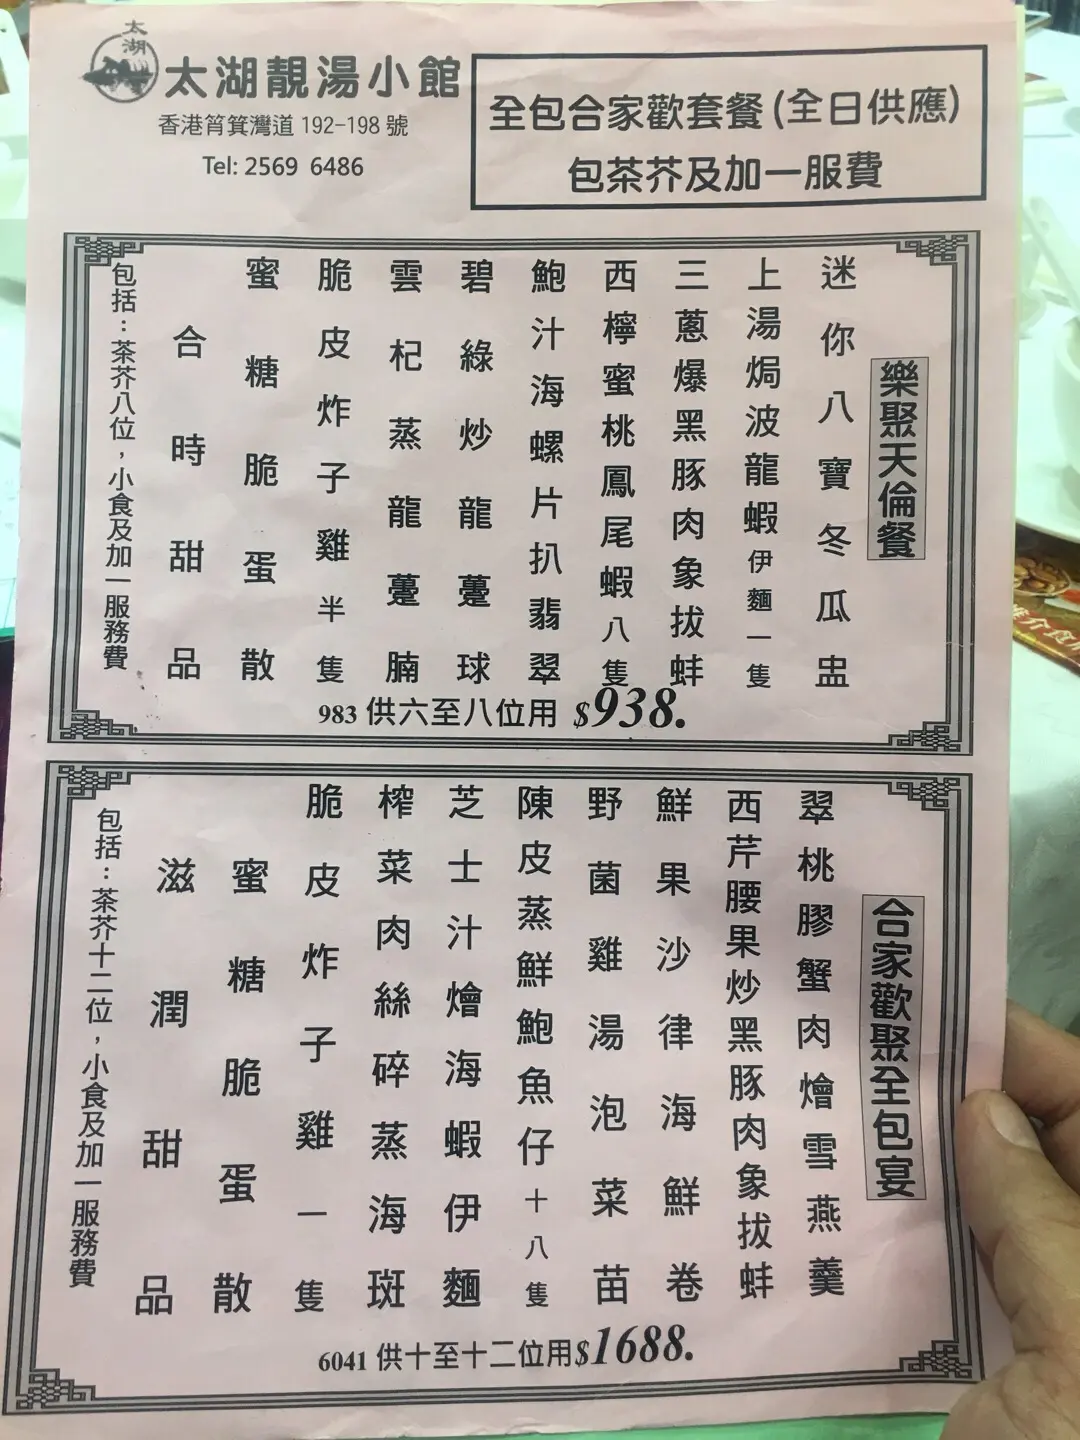 太湖
太湖靚湯小館
香港筲箕灣道 192-198 號
Tel: 2569 6486
全包合家歡套餐(全日供應)
包茶芥及加一服費
樂聚天倫餐
迷你八寶冬瓜盅
上湯焗波龍蝦伊麵一隻
三蔥爆黑豚肉象拔蚌
西檸蜜桃鳳尾蝦八隻
鮑汁海螺片扒翡翠
碧綠炒龍躉球
雲杞蒸龍躉腩
脆皮炸子雞半隻
蜜糖脆蛋散
合時甜品
包括：茶芥八位，小食及加一服務費
983 供六至八位用 $938.
合家歡聚全包宴
翠桃膠蟹肉燴雪燕羹
西芹腰果炒黑豚肉象拔蚌
鮮果沙律海鮮卷
野菌雞湯泡菜苗
陳皮蒸鮮鮑魚仔十八隻
芝士汁燴海蝦伊麵
榨菜肉絲碎蒸海斑
脆皮炸子雞一隻
蜜糖脆蛋散
滋潤甜品
包括：茶芥十二位，小食及加一服務費
6041 供十至十二位用$1688.